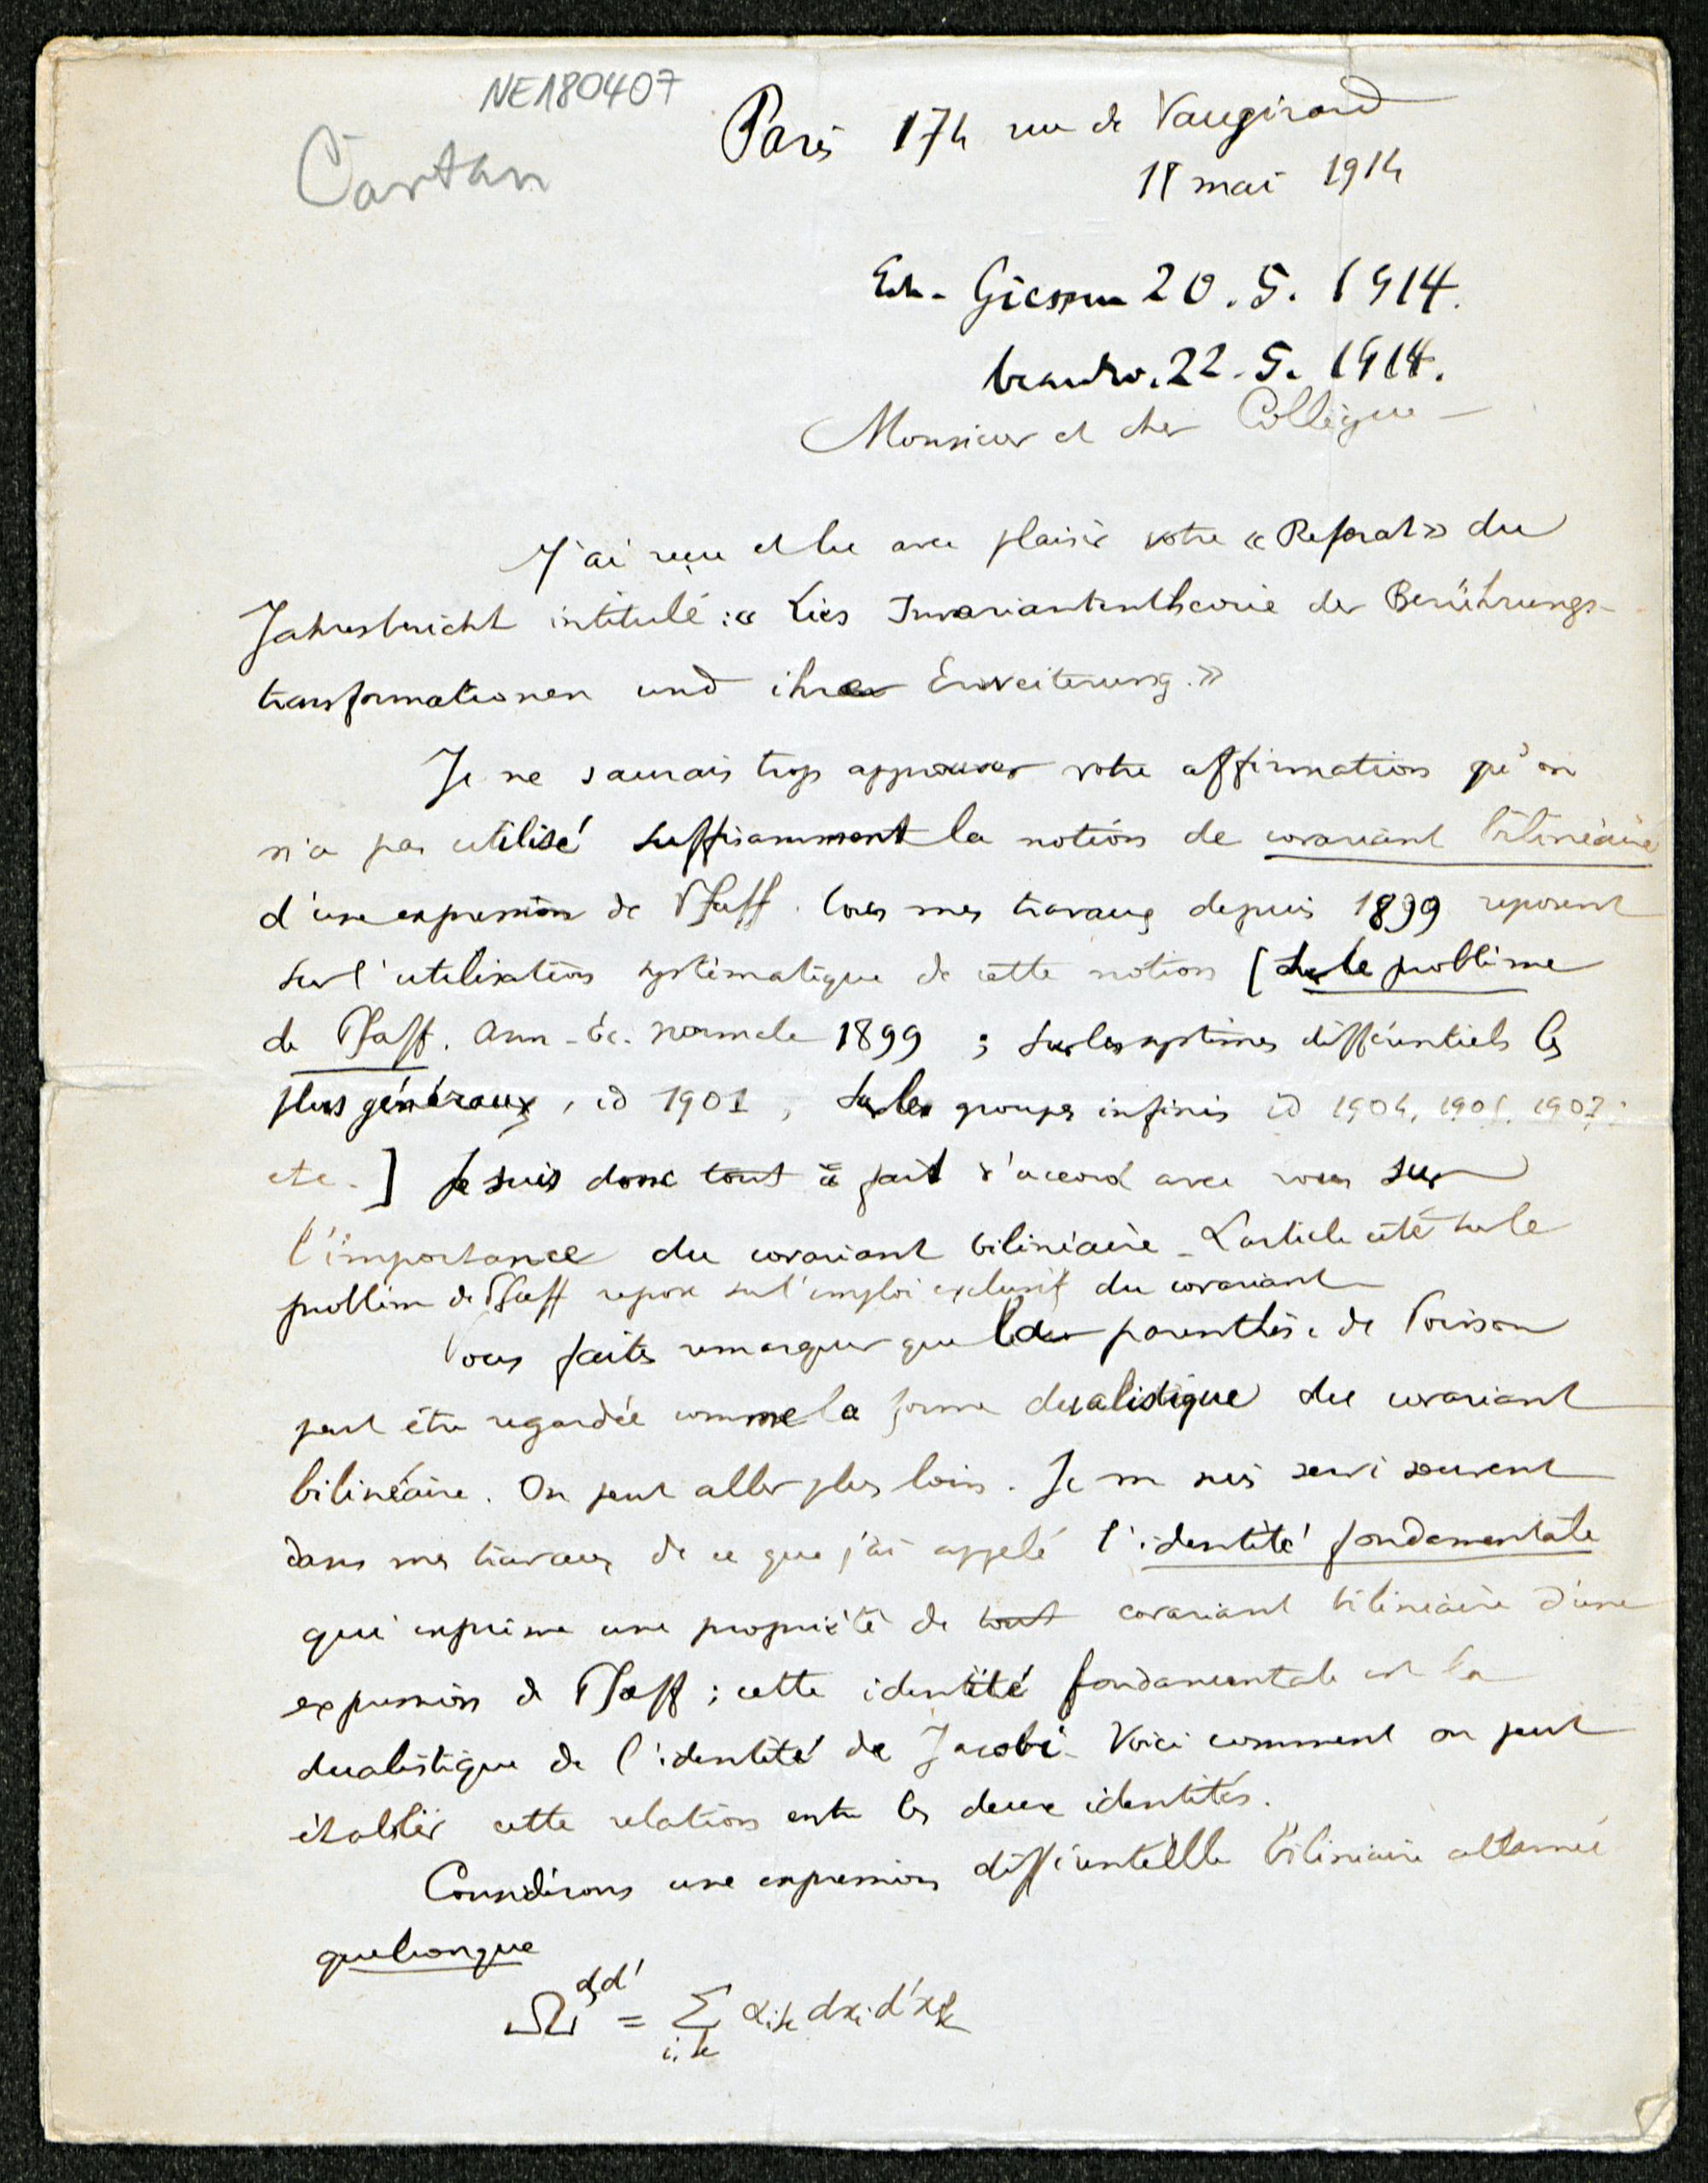 NE180407
Cartan
Paris 174 rue de Vaugirard
18 mai 1914
Giessen 20.5.1914.
22.5.1914.
Monsieur et cher Collègue
J'ai reçu et lu avec plaisir votre « Referat » du
Jahresbericht intitulé : « Lies Invariantentheorie der Berührungs-
transformationen und ihre Erweiterung. »
Je ne saurais trop approuver votre affirmation qu'on
n'a pas utilisé suffisamment la notion de covariant bilinéaire
d'une expression de Pfaff. Tous mes travaux depuis 1899 reposent
sur l'utilisation systématique de cette notion [Sur le problème
de Pfaff. Ann. Éc. Normale 1899 ; Sur les systèmes différentiels les
plus généraux, id 1901, Sur les groupes infinis id 1904, 1905, 1907.
etc.] Je suis donc tout à fait d'accord avec vous sur
l'importance du covariant bilinéaire. L'article cité sur le
problème de Pfaff repose sur l'emploi exclusif du covariant
Vous faites remarquer que la parenthèse de Poisson
peut être regardée comme la forme dualistique du covariant
bilinéaire. On peut aller plus loin. Je me suis servi souvent
dans mes travaux de ce que j'ai appelé l'identité fondamentale
qui exprime une propriété de tout covariant bilinéaire d'une
expression de Pfaff ; cette identité fondamentale est la
dualistique de l'identité de Jacobi. Voici comment on peut
établir cette relation entre les deux identités.
Considérons une expression différentielle bilinéaire alternée
quelconque
Ω^{d,d'} = Σ_{i,k} α_{ik} dx_i d'x_k